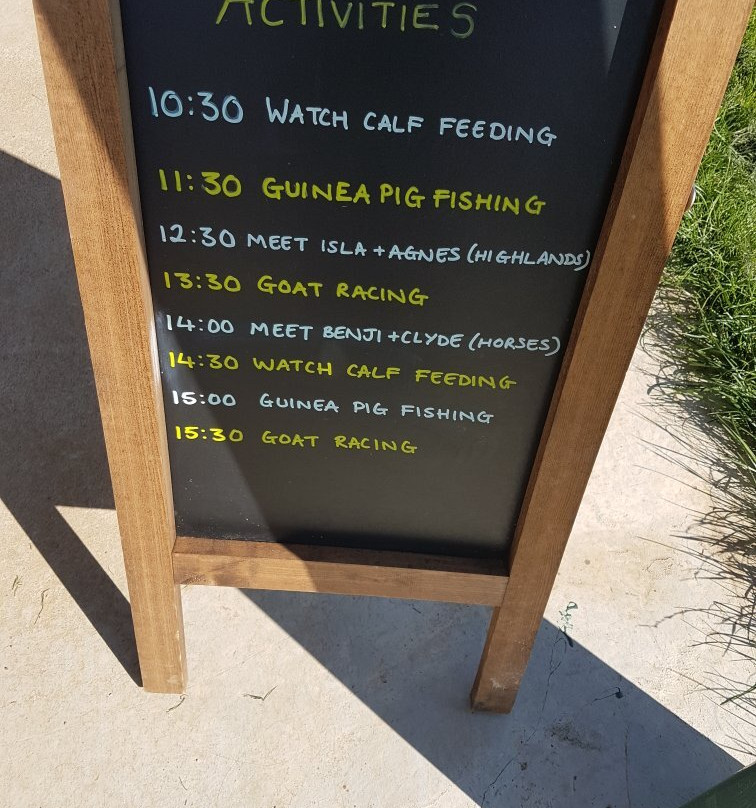 ACTIVITIES
10:30 WATCH CALF FEEDING
11:30 GUINEA PIG FISHING
12:30 MEET ISLA + AGNES (HIGHLANDS)
13:30 GOAT RACING
14:00 MEET BENJI + CLYDE (HORSES)
14:30 WATCH CALF FEEDING
15:00 GUINEA PIG FISHING
15:30 GOAT RACING